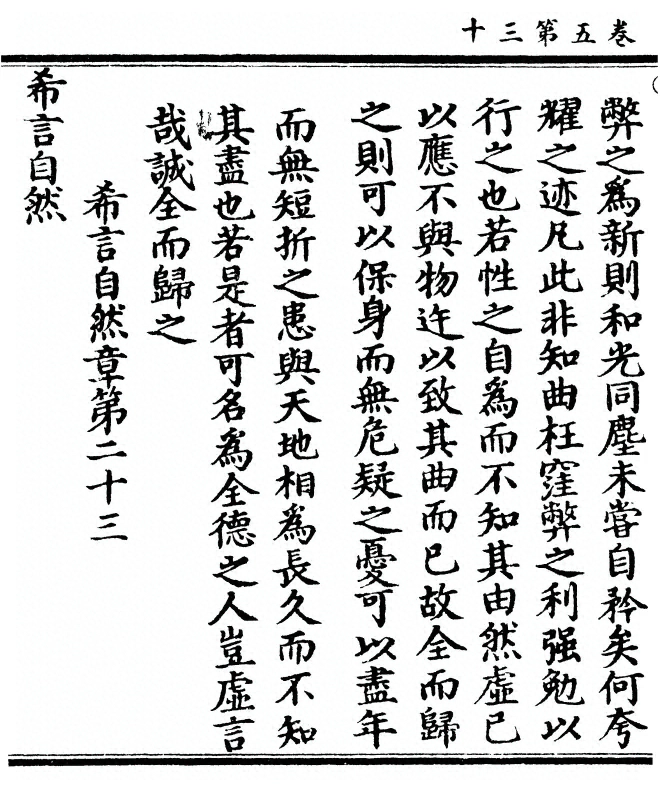 卷五第三十
弊之爲新則和光同塵未嘗自矜矣何夸
耀之迹凡此非知曲枉窪弊之利强勉以
行之也若性之自爲而不知其由然虛已
以應不與物迕以致其曲而已故全而歸
之則可以保身而無危疑之憂可以盡年
而無短折之患與天地相爲長久而不知
其盡也若是者可名爲全德之人豈虛言
哉誠全而歸之
希言自然章第二十三
希言自然